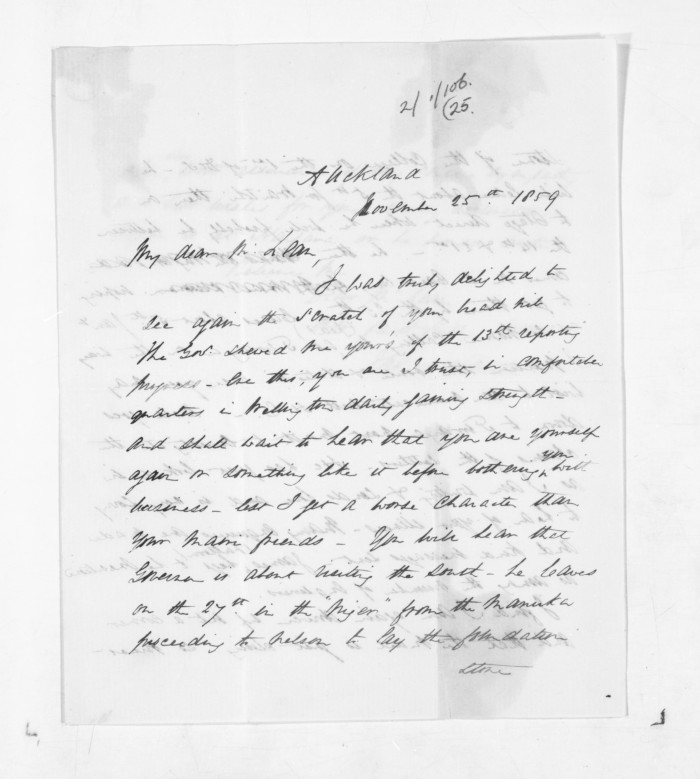 2/ 1/106.
(25.
Auckland
November 25th 1859
My dear Mc Lean,
I was truly delighted to
see again the scratch of your broad nib
The Govr. shewed me yours of the 13th reporting
progress - Ere this, you are, I trust, in comfortable
quarters in Wellington daily gaining strength -
and shall wait to hear that you are yourself
again or something like it before bothering you with
business - lest I get a worse character than
your Maori friends - You will hear that
Governor is about visiting the South - he leaves
on the 27th in the "Niger" from the Manukau
proceeding to Nelson to lay the foundation
stone